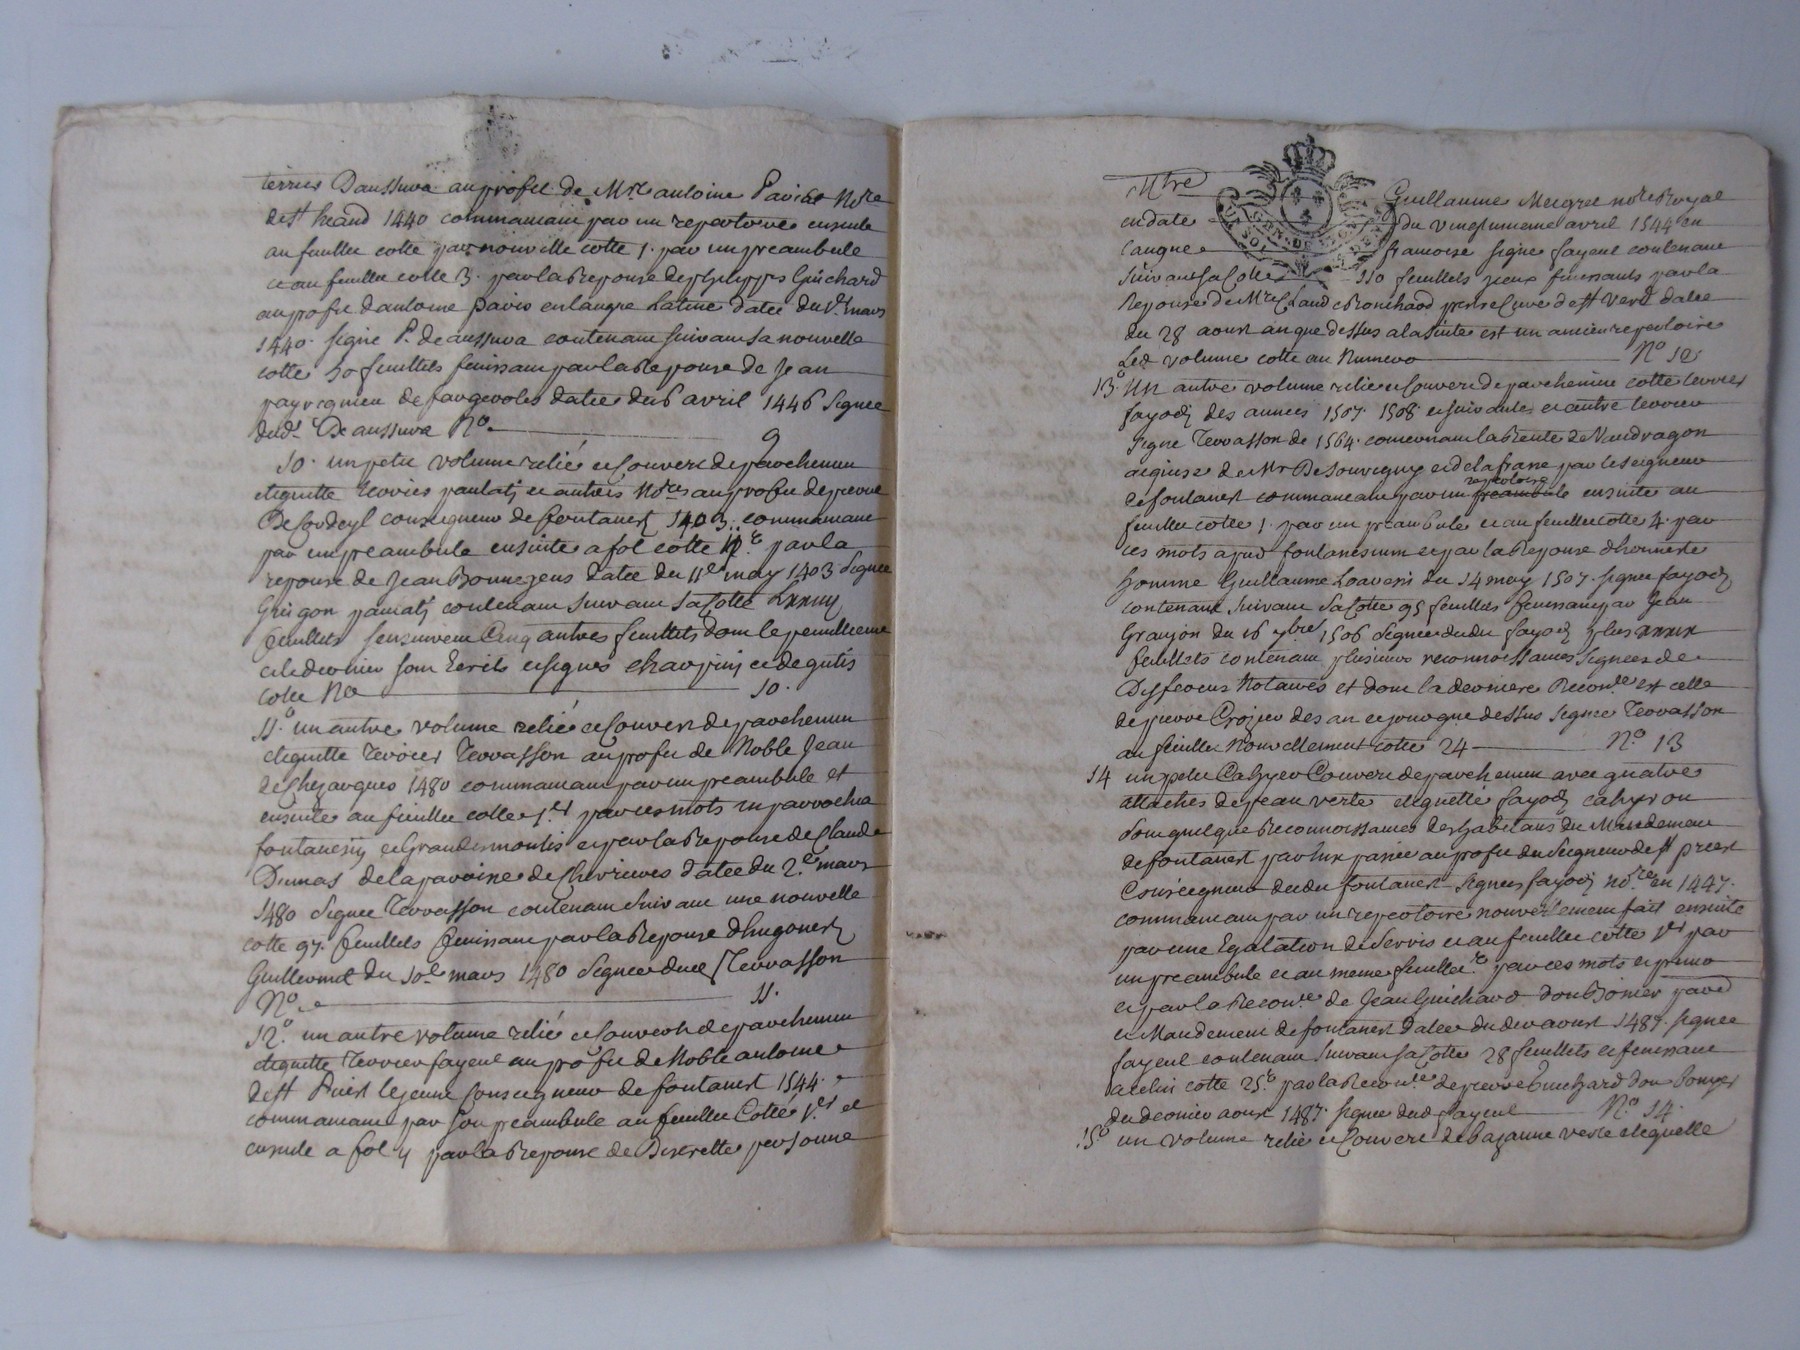 terrier Daussura au profit de Mre antoine Pavier Nore
de st heand 1440 commancant par un repertoire ensuite
au feuillet cotte par nouvelle cotte 1. par un preambule
et au feuillet cotte 3. par la Reponse de phelippes Guichard
au profit dantoine pavier en langue Latine datée du 1er mars
1440. signé P. de aussura contenant suivant sa nouvelle
cotte 50 feuillets finissant par la Reponse de Jean
de fangerolles datée du 6 avril 1446 signée
dudt De aussura No 9
10. un petit volume relié et Couvert de parchemin
etiquetté terrier paulatj et autres Nores au profit de pierre
conseigneur de fontanest 1403. commancant
par un preambule ensuite a fol cotte par la
reponse de Jean Bonnezens datée du 11e may 1403 signée
contenant suivant sa Cotte Lxxiiij
feuillets sensuivent Cinq autres feuillets dont le penultieme
et le dernier sont Ecrits et signés et de
cotte No 10.
11o. un autre volume relié et Couvert de parchemin
etiquetté terrier Terrasson au profit de Noble Jean
de Chezarques 1480 commancant par un preambule et
ensuite au feuillet cotté 1er par ces mots in parrochia
fontanesij et Grandismontis et par la Reponse de Claude
Dumas de la paroisse de Chevrieres datée du 2e mars
1480 signée Terrasson contenant suivant une nouvelle
cotte 97. feuillets finissant par la Reponse dhugonest
Guillermet du 10e mars 1480 signée dudt Terrasson
No. 11.
12o. un autre volume relié et Couvert de parchemin
etiquetté terrier fayeul au profit de Noble antoine
de st Priest le jeune Conseigneur de fontanest 1544.
commancant par son preambule au feuillet Cotté 1er et
ensuite a fol 4 par la Reponse de Discrette personne
Mtre Guillaume Meigret nore Royal
en date du vingtunieme avril 1544 en
langue francoise signé fayeul contenant
suivant sa Cotte 110 feuillets finissants par la
Reponse de Mre Claude Bronchard de st Verd datée
du 28 aoust an que dessus a la suitte est un ancien repertoire
Led. volume cotte au Numero No 12.
13o. Un autre volume relié et Couvert de parchemin cotté terrier
fayodj des années 1507. 1508. et suivantes et autre terrier
signé Terrasson de 1564. concernant la Rente de Vaudragon
acquise de Mr De Souvigny et de la frasse par le seigneur
de fontanest commancant par un preambule repertoire ensuite au
feuillet cotté 1. par un preambule et au feuillet Cotte 4. par
ces mots apud fontanesium et par la Reponse dhonneste
homme Guillaume Loavesi du 14 may 1507. signée fayodj
contenant suivant sa Cotte 95 feuillets finissant par Jean
Granjon du 16 xbre 1506 signée dudit fayodj plus xxxix
feuillets contenant plusieurs reconnoissances signées de
Differens Notaires et dont la derniere Reconce est celle
de pierre Crozier des an et jour que dessus signée Terrasson
au feuillet Nouvellement cotté 24 No. 13
14 un petit Cahyer Couvert de parchemin avec quatre
attaches de peau verte etiquetté fayodj cahyer ou
sont quelque Reconnoissances des habitans du Mandement
de fontanest par Eux passée au profit du Seigneur de st priest
Conseigneur dudit fontanest signées fayodj nore en 1447.
commancant par un repertoire nouvellement fait ensuite
par une Egalation de servis et au feuillet cotté 1er par
un preambule et au meme feuillet par ces mots et primo
et par la Reconce de Jean Guichard dou Bonier parre
et Mandement de fontanest datée du der aoust 1487. signée
fayeul contenant suivant sa Cotte 28 feuillets et finissant
a celui cotté 25e par la Reconce de pierre Guichard dou
du dernier aoust 1487. signée dudt fayeul No. 14.
15o un volume relié et Couvert de bazanne verte etiquetté